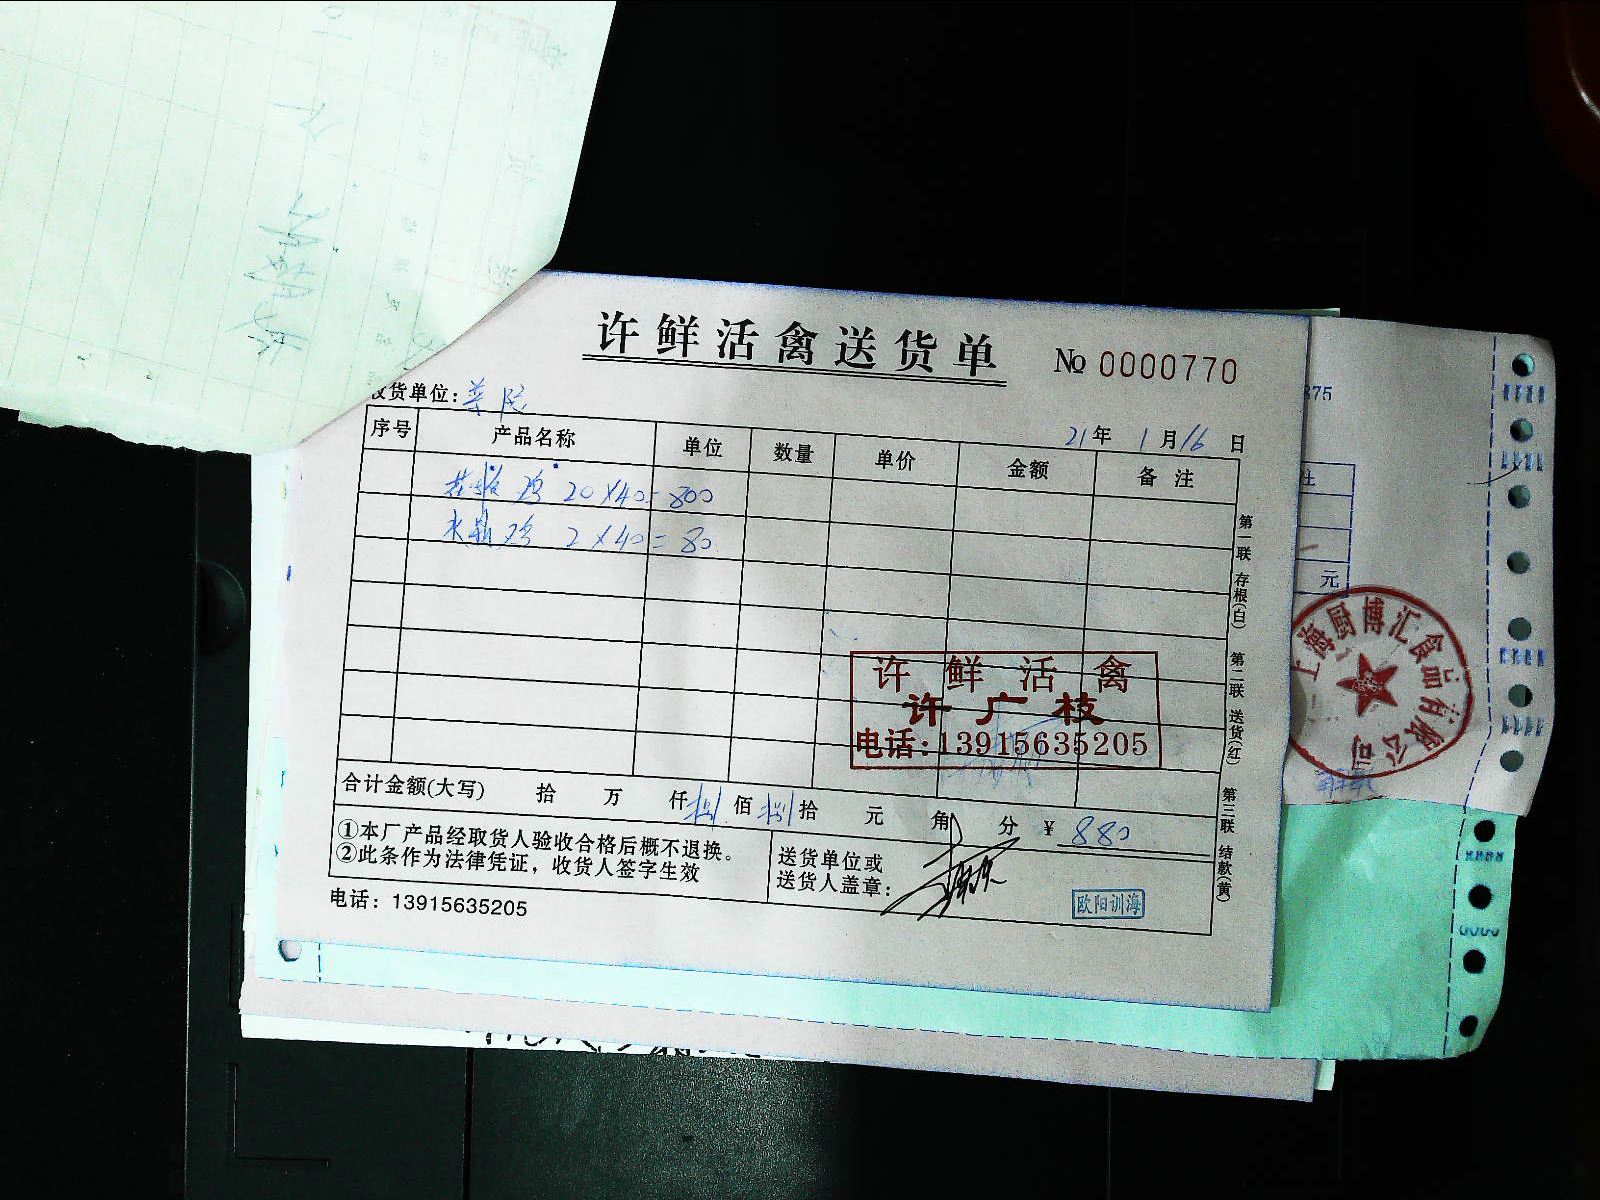 许鲜活禽送货单
No 0000770
货单位:
21年 1月16日
序号 产品名称 单位 数量 单价 金额 备注
鸡 20×40=800
水晶鸡 2×40=80
第一联 存根(白)
第二联 送货(红)
第三联 结款(黄)
许鲜活禽
许广枝
电话:13915635205
合计金额(大写) 拾 万 仟 捌 佰 捌 拾 元 角 分 ¥ 880
①本厂产品经取货人验收合格后概不退换。
②此条作为法律凭证，收货人签字生效
送货单位或
送货人盖章:
欧阳训海
电话: 13915635205
375
元
上海厨博汇食品有限公司